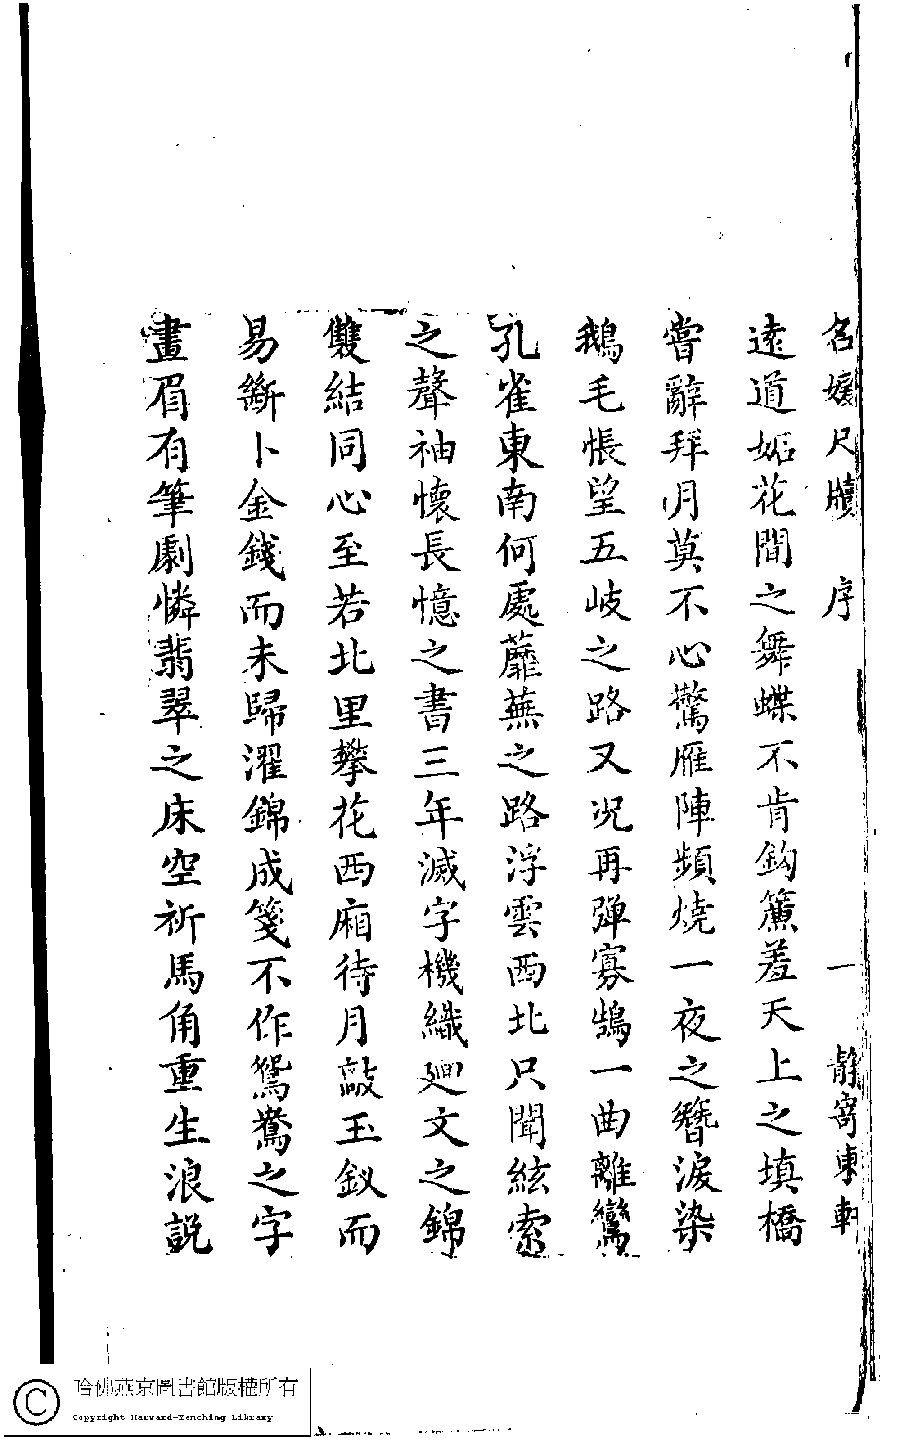 名媛尺牘　序　一　靜寄東軒
遠道妬花間之舞蝶不肯鈎簾羞天上之填橋
嘗辭拜月莫不心驚雁陣頻燒一夜之簪淚染
鵝毛悵望五岐之路又况再弹寡鵠一曲離鸞
孔雀東南何處蘼蕪之路浮雲西北只聞絃索
之聲袖懷長憶之書三年滅字機織廻文之錦
雙結同心至若北里攀花西廂待月敲玉釵而
易斷卜金錢而未歸濯錦成箋不作鴛鴦之字
畫眉有筆劇憐翡翠之床空祈馬角重生浪說
哈佛燕京圖書館版權所有
Copyright Harvard-Yenching Library